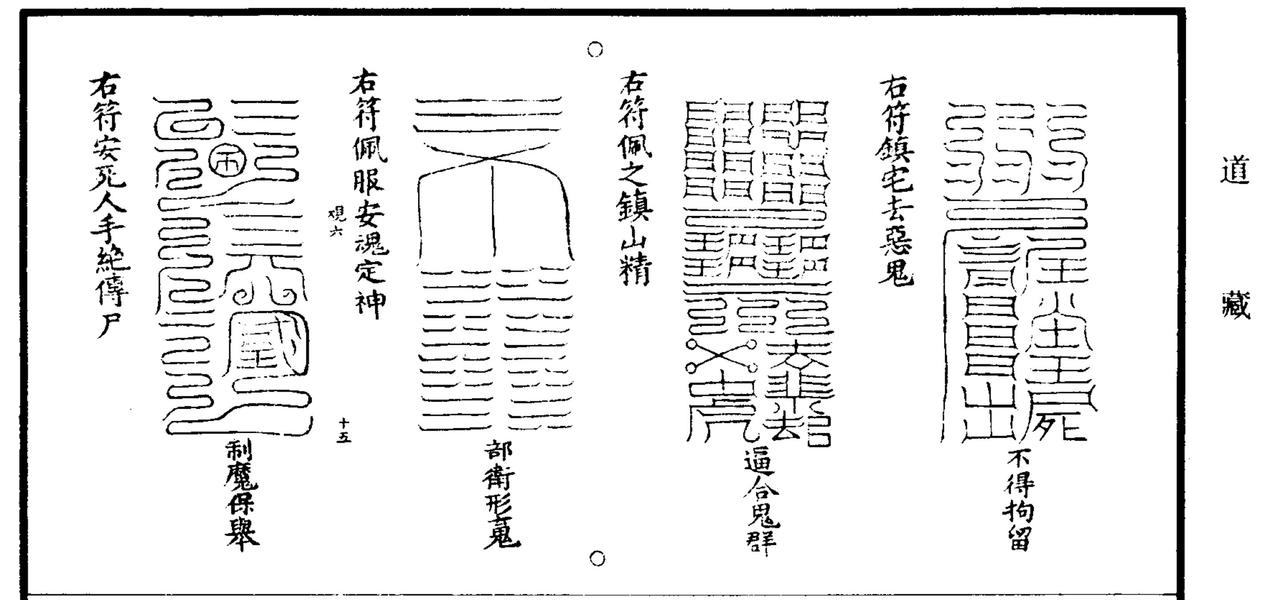 道藏
不得拘留
右符鎮宅去惡鬼
逼合鬼群
右符佩之鎮山精
部衛形䰟
右符佩服安魂定神
十五
制魔保舉
右符安死人手絕傳尸